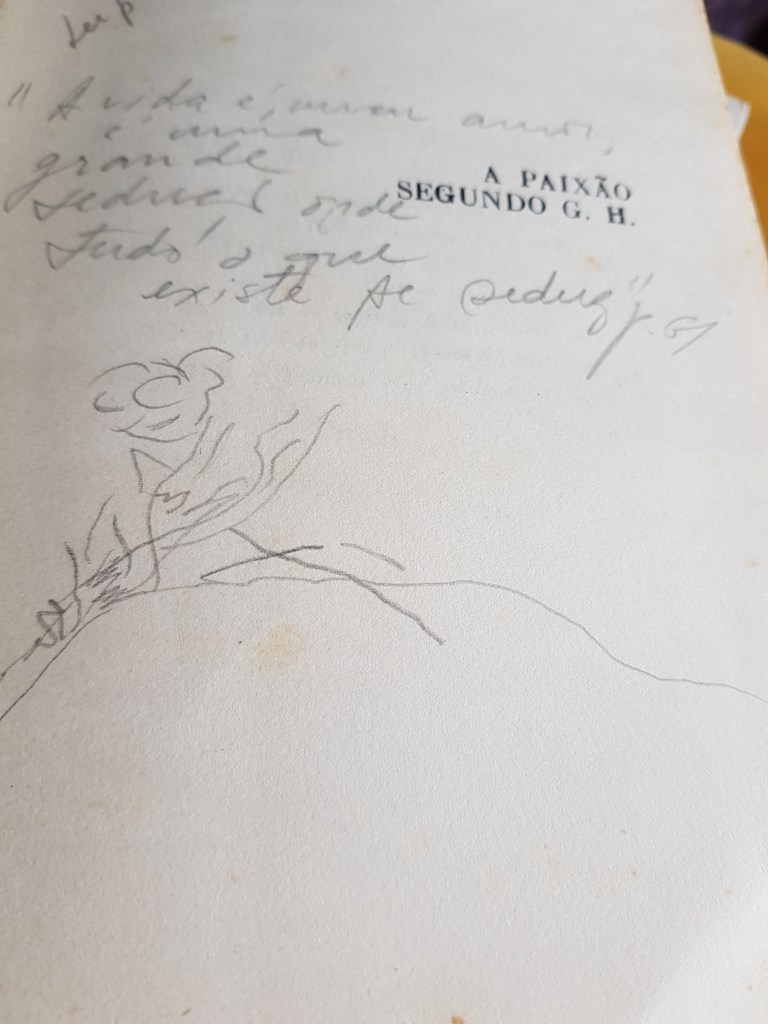 "A vida é, meu amor,
é uma
grande
sedução onde
tudo o que
existe se seduz" p. 61
A PAIXÃO
SEGUNDO G. H.